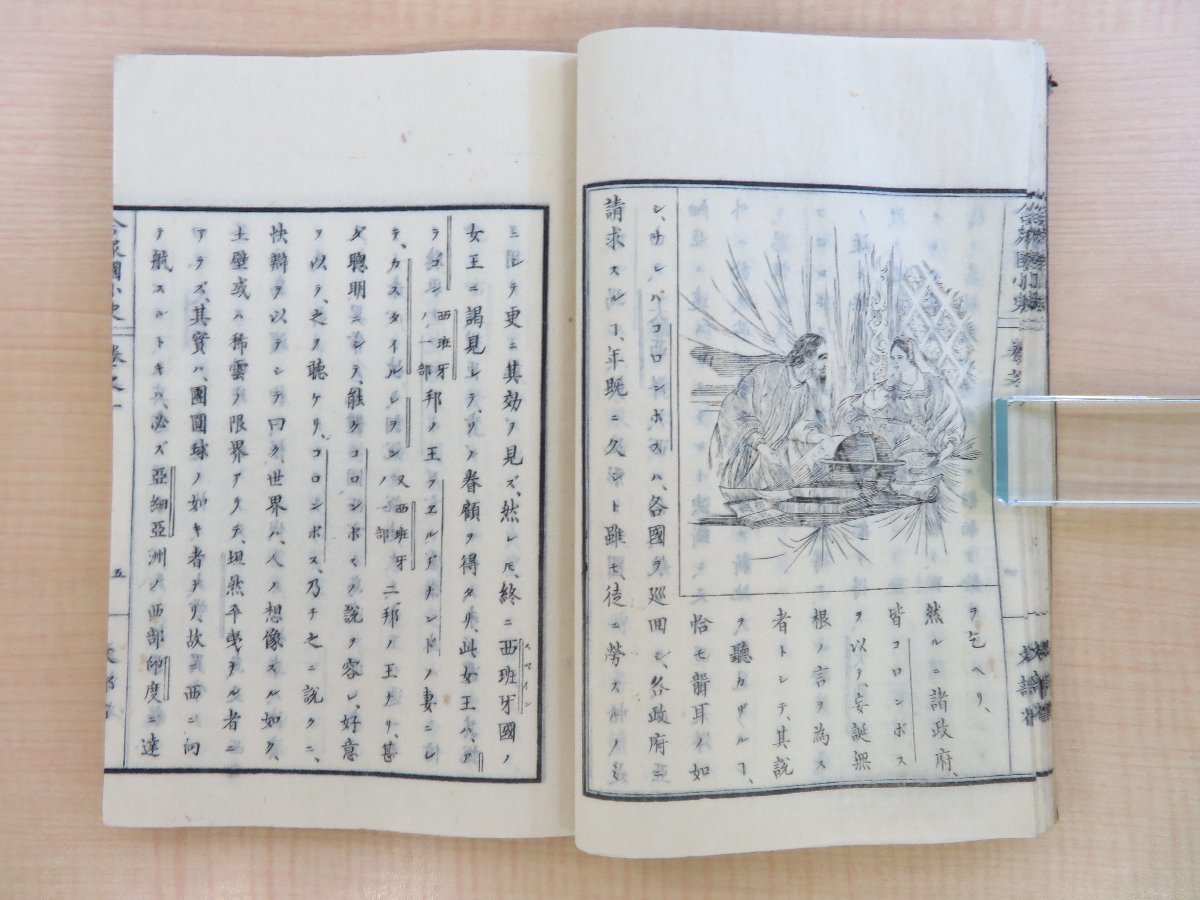 ヲ乞ヘリ、
然ルニ諸政府、
皆コロンボス
ヲ以テ、妄誕無
根ノ言ヲ為ス
者トシテ、其說
ヲ聽カザルヿ、
恰モ聾耳ノ如
シ、サレバコロンボスハ、各國ヲ巡回シ、各政府ニ
請求スルヿ、年既ニ久シト雖モ徒ニ勞スルノミ
ニシテ更ニ其効ヲ見ズ、然レ𪜈、終ニ西班牙國ノ
スペイン
女王ニ謁見シテ、ソノ眷顧ヲ得タリ、此女王ハ、ア
ラゴン 西班牙ノ一部 邦ノ王ヲエルヂナンドノ妻ニシ
テ、カスタイル レヲン 又西班牙ノ一部 二邦ノ王ナリ、甚
ダ聰明ニシテ、能クコロンボスノ說ヲ容レ、好意
ヲ以テ、之ヲ聽ケリ、コロンボス、乃チ之ニ說クニ、
快辯ヲ以テシテ曰ク世界ハ、人ノ想像スル如ク、
土壁或ハ稀雲ヲ限界アリテ、坦然平曵ナル者ニ
アラズ、其實ハ、團圓球ノ如キ者ナリ故ニ西ニ向
テ航スルトキハ、必ズ亞細亞洲ノ西部印度ニ達
五